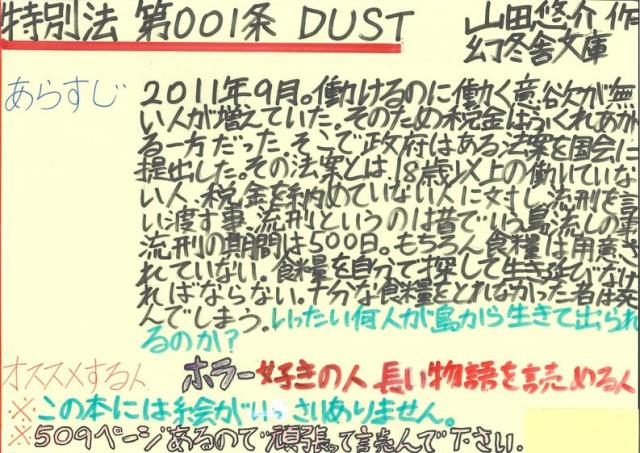 特別法 第001条 DUST
山田悠介 作
幻冬舎文庫
あらすじ
2011年9月。働けるのに働く意欲が無
い人が増えていた。そのため税金はふくれあが
る一方だった。そこで政府はある法案を国会に
提出した。その法案とは、18歳以上の働いていな
い人、税金を納めていない人に対し、流刑を言
い渡す事。流刑というのは昔でいう島流しの事
流刑の期間は500日。もちろん食糧は用意さ
れていない。食糧を自分で探して生き延びなけ
ればならない。十分な食糧をとれなかった者は死
んでしまう。いったい何人が島から生きて出られ
るのか?
オススメする人 ホラー好きの人 長い物語を読める人
※この本には絵がいっさいありません。
※509ページあるので頑張って読んで下さい.